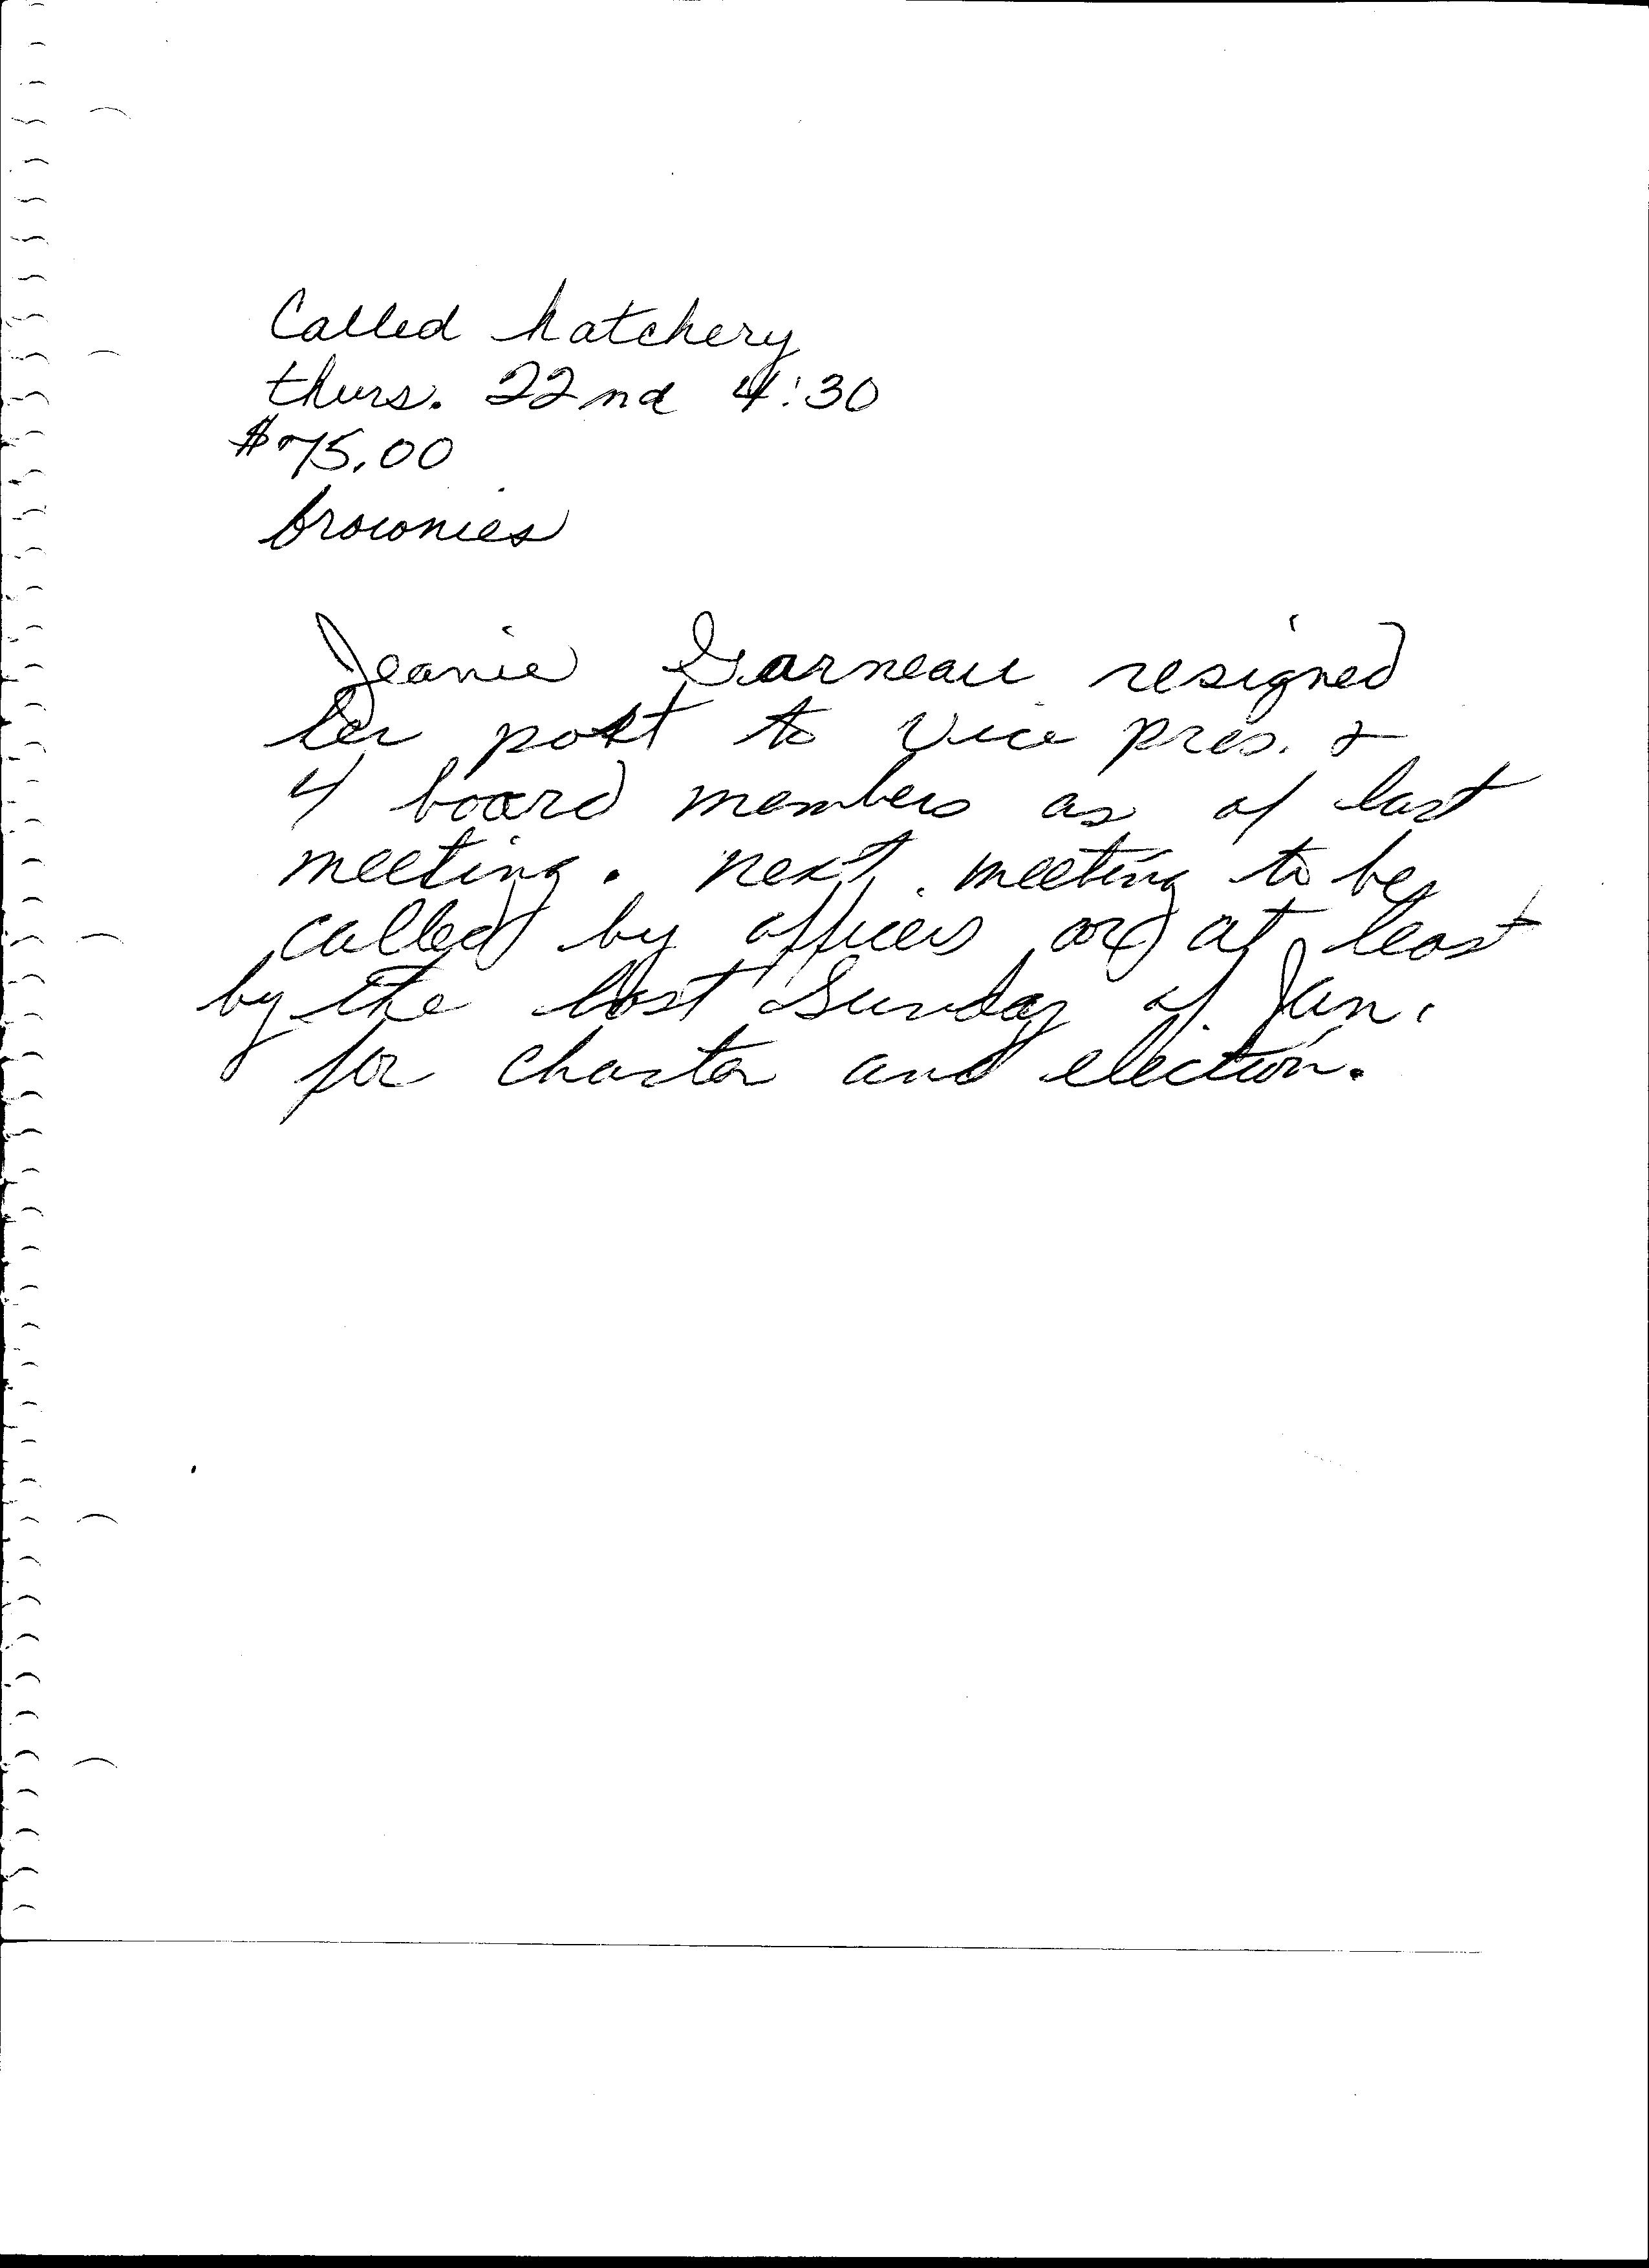 Called hatchery
thurs. 22nd 4:30
$75.00
brownies
Jeanie Garneau resigned
her post to Vice pres. &
4 board members as of last
meeting. next meeting to be
called by officers or at least
by the last Sunday of Jan.
for charter and election.